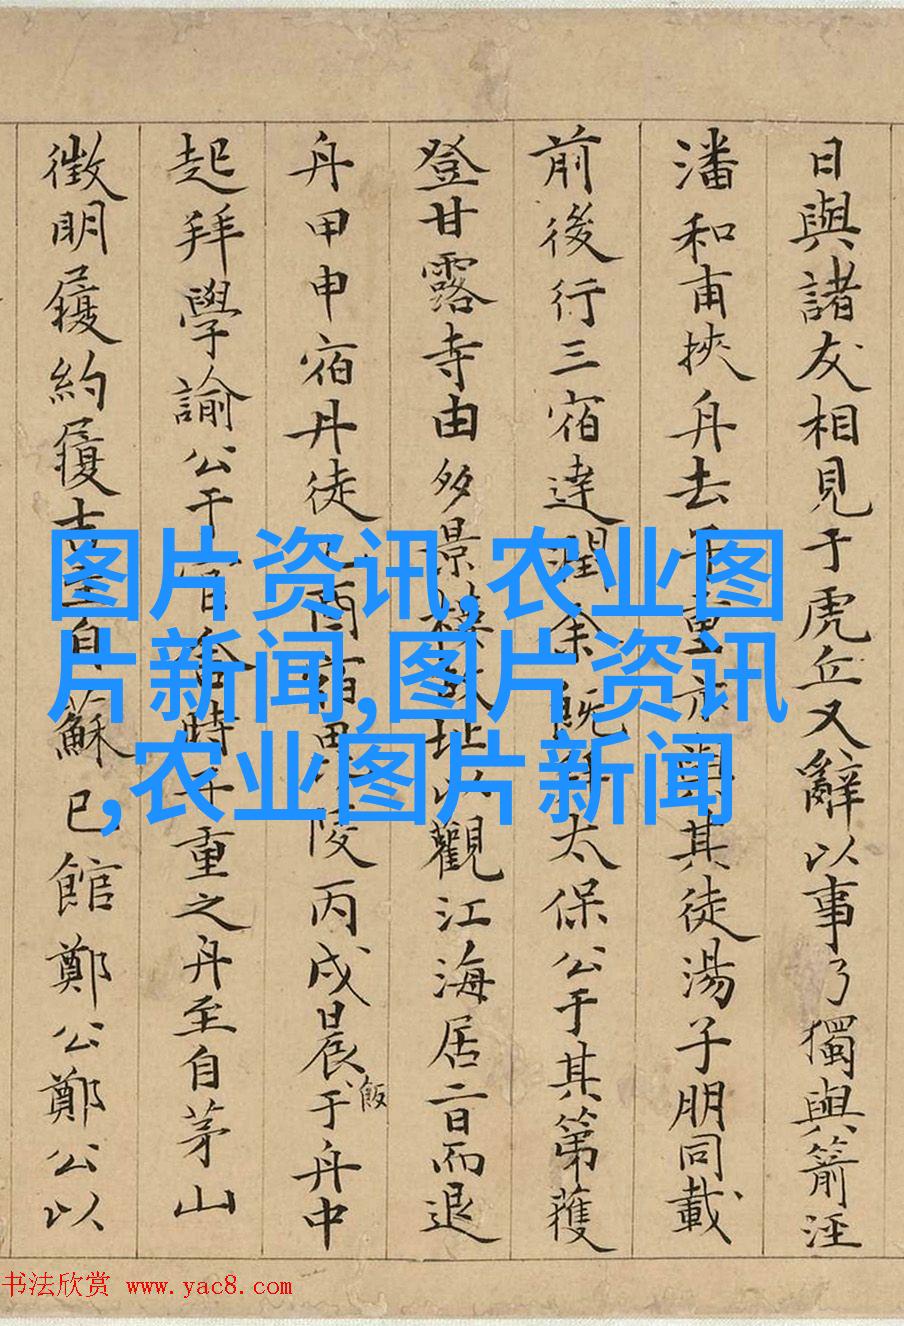 日與諸友相見于虎丘又辭以事乃獨與箭涇
潘和甫挾舟去子重亦與其徒湯子朋同載
前後行三宿達潤余既拜太保公于其第獲
登甘露寺由多景樓故址以觀江海居二日而退
舟甲申宿丹徒乙酉宿毘陵丙戌晨飯于舟中
起拜學諭公于官舍時子重之舟至自茅山
徵明履約履吉至自蘇已館鄭公鄭公以
图片资讯,农业图
片新闻,图片资讯
,农业图片新闻
书法欣赏 www.yac8.com